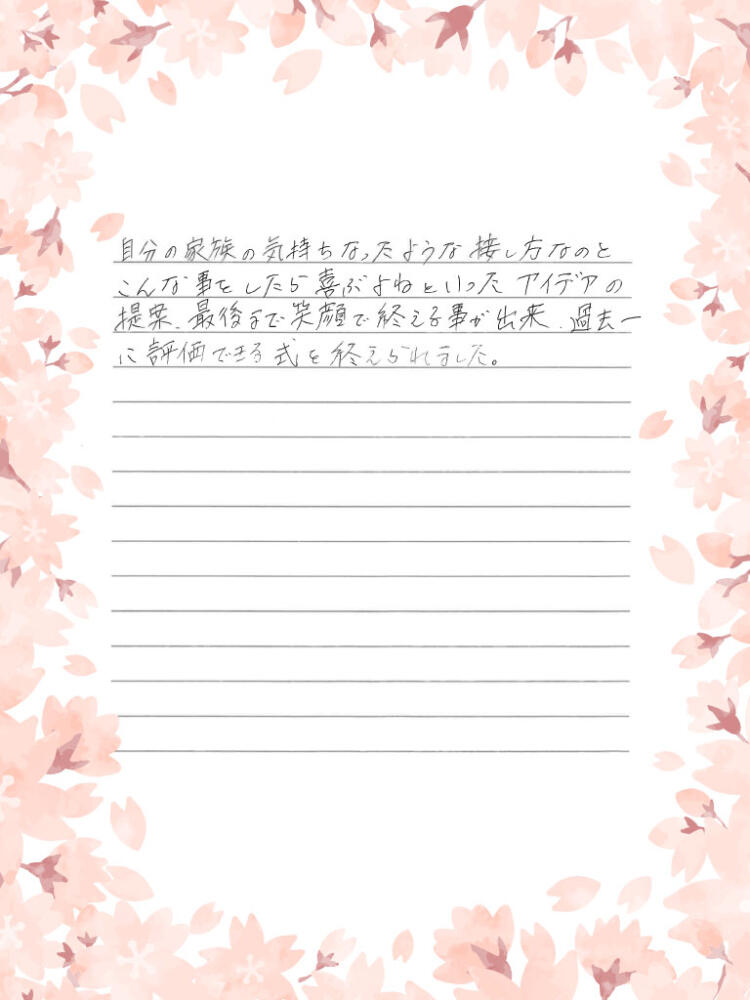 自分の家族の気持ちなったような接し方なのと
こんな事をしたら喜ぶよねといったアイデアの
提案、最後まで笑顔で終える事が出来、過去一
に評価できる式を終えられました。